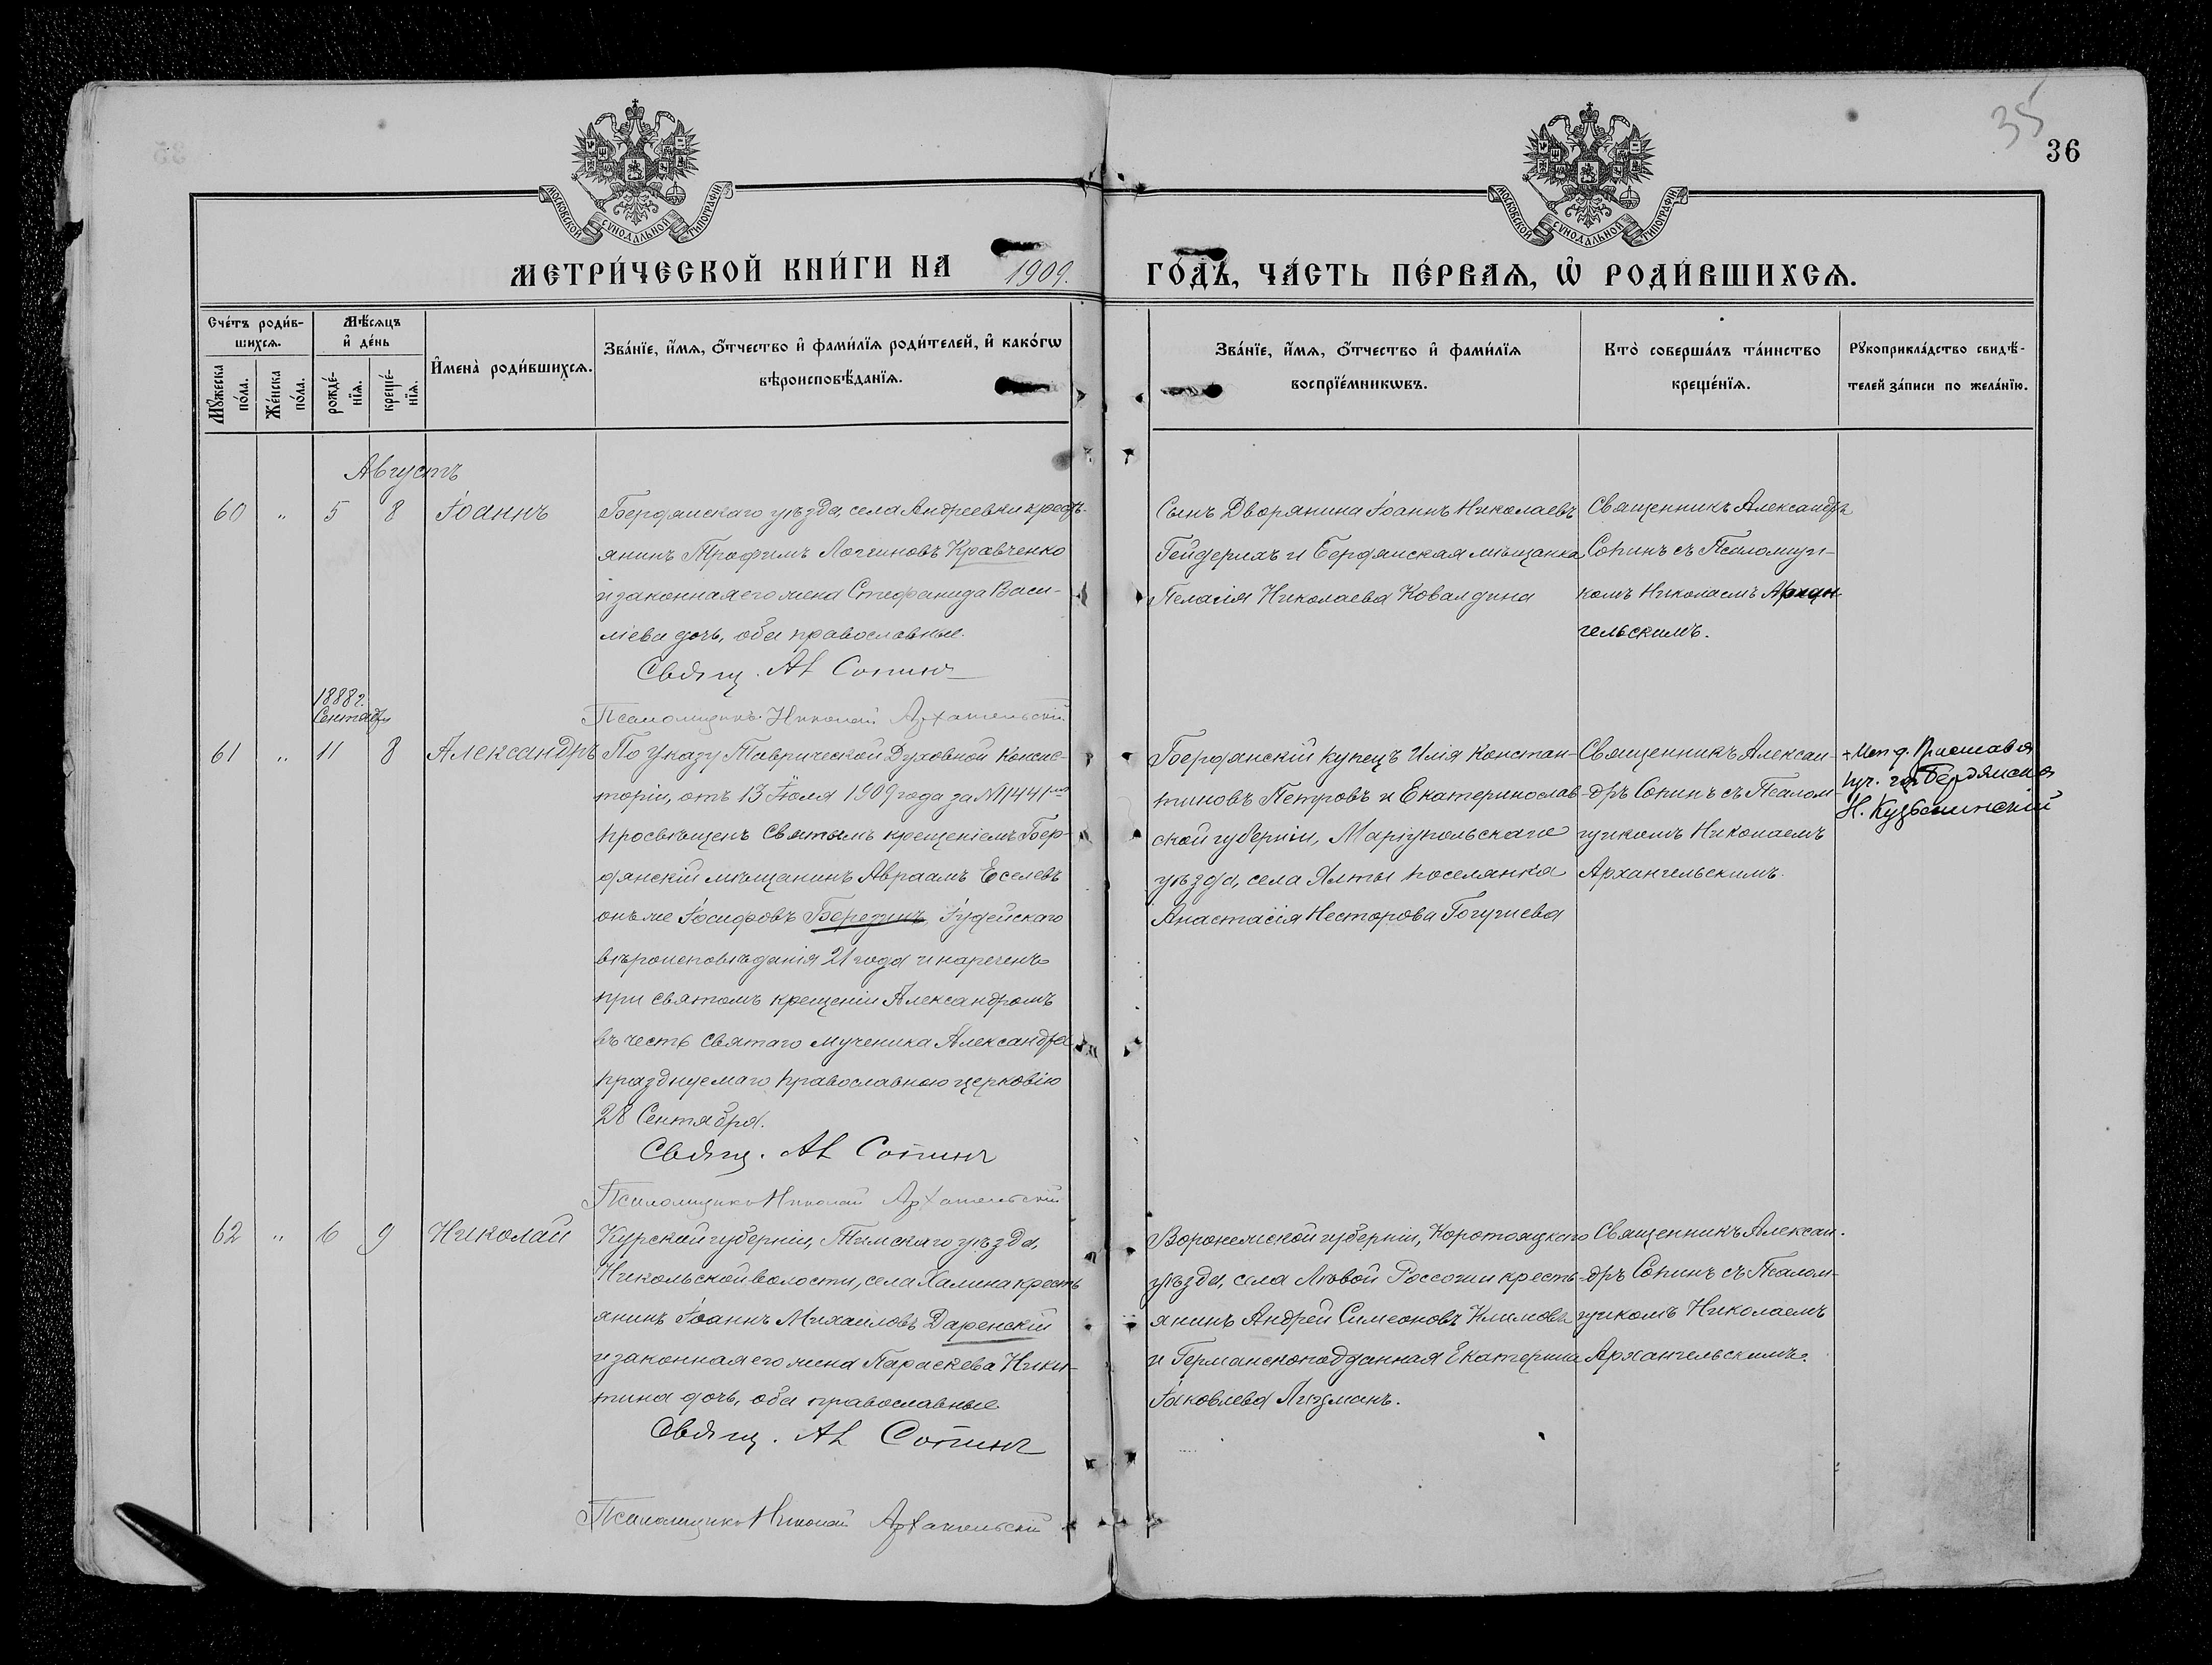 35
36
МОСКОВСКОЙ СѴНОДАЛЬНОЙ ТИПОГРАФІИ
МОСКОВСКОЙ СѴНОДАЛЬНОЙ ТИПОГРАФІИ
МЕТРИ́ЧЕСКОЙ КНИ́ГИ НА 1909. ГО́ДЪ, ЧА́СТЬ ПЕ́РВАѦ, Ѡ҆ РОДИ́ВШИХСѦ.
Сче́тъ роди́в-
шихсѧ.
Мꙋ́жеска по́ла.
Же́нска по́ла.
Мѣ́сѧцъ
и҆ де́нь
рожде́-
нїѧ.
креще́-
нїѧ.
И҆мена̀ роди́вшихсѧ.
Зва́нїе, и҆́мѧ, о҆́тчество и҆ фами́лїѧ роди́телей, и҆ како́гѡ
вѣроисповѣ́данїѧ.
Зва́нїе, и҆́мѧ, о҆́тчество и҆ фами́лїѧ
воспрїе́мникѡвъ.
Кто̀ соверша́лъ та́инство
креще́нїѧ.
Рꙋкоприкла́дство свидѣ́-
телей за́писи по жела́нїю.
Августъ
60 " 5 8 Іоаннъ
Бердянскаго уѣзда, села Андреевки кресть-
янинъ Трофимъ Логгиновъ Кравченко
и законная его жена Стефанида Васи-
ліева дочь, оба православные.
Свящ. Ал Сопинъ
Псаломщикъ Николай Архангельскій
Сынъ Дворянина Іоаннъ Николаевъ
Гейдерихъ и Бердянская мѣщанка
Пелагія Николаева Ковалдина
Священникъ Александръ
Сопинъ съ Псаломщи-
комъ Николаемъ Архан-
гельскимъ.
1888 г.
Сентября
61 " 11 8 Александръ
По Указу Таврической Духовной Консис-
торіи, отъ 13 Іюля 1909 года за № 11441мъ
просвѣщенъ Святымъ крещеніемъ Бер-
дянскій мѣщанинъ Авраамъ Еселевъ
онъ же Іосифовъ Березинъ, Іудейскаго
вѣроисповѣданія 21 года и нареченъ
при святомъ крещеніи Александромъ
въ честь Святаго мученика Александра
празднуемаго православною церковію
28 Сентября.
Свящ. Ал Сопинъ
Псаломщикъ Николай Архангельскій
Бердянскій купецъ Илія Констан-
тиновъ Петровъ и Екатеринослав-
ской губерніи, Маріупольскаго
уѣзда, села Ялты поселянка
Анастасія Несторова Гогуниева
Священникъ Алексан-
дръ Сопинъ съ Псалом-
щикомъ Николаемъ
Архангельскимъ.
Исп д. Пристава
гор Бердянска
Н. Кузьминскій
62 " 6 9 Николай
Курской губерніи, Тимскаго уѣзда,
Никольской волости, села Халина кресть
янинъ Іоаннъ Михаиловъ Даренскій
и законная его жена Параскева Ники-
тина дочь, оба православные
Свящ. Ал Сопинъ
Псаломщикъ Николай Архангельскій
Воронежской губерніи, Коротоякскаго
уѣзда, села Лювой Россоши кресть-
янинъ Андрей Симеоновъ Климовъ
и Германскоподданная Екатерина
Іаковлева Лизманъ.
Священникъ Алексан-
дръ Сопинъ съ Псалом-
щикомъ Николаемъ
Архангельскимъ.